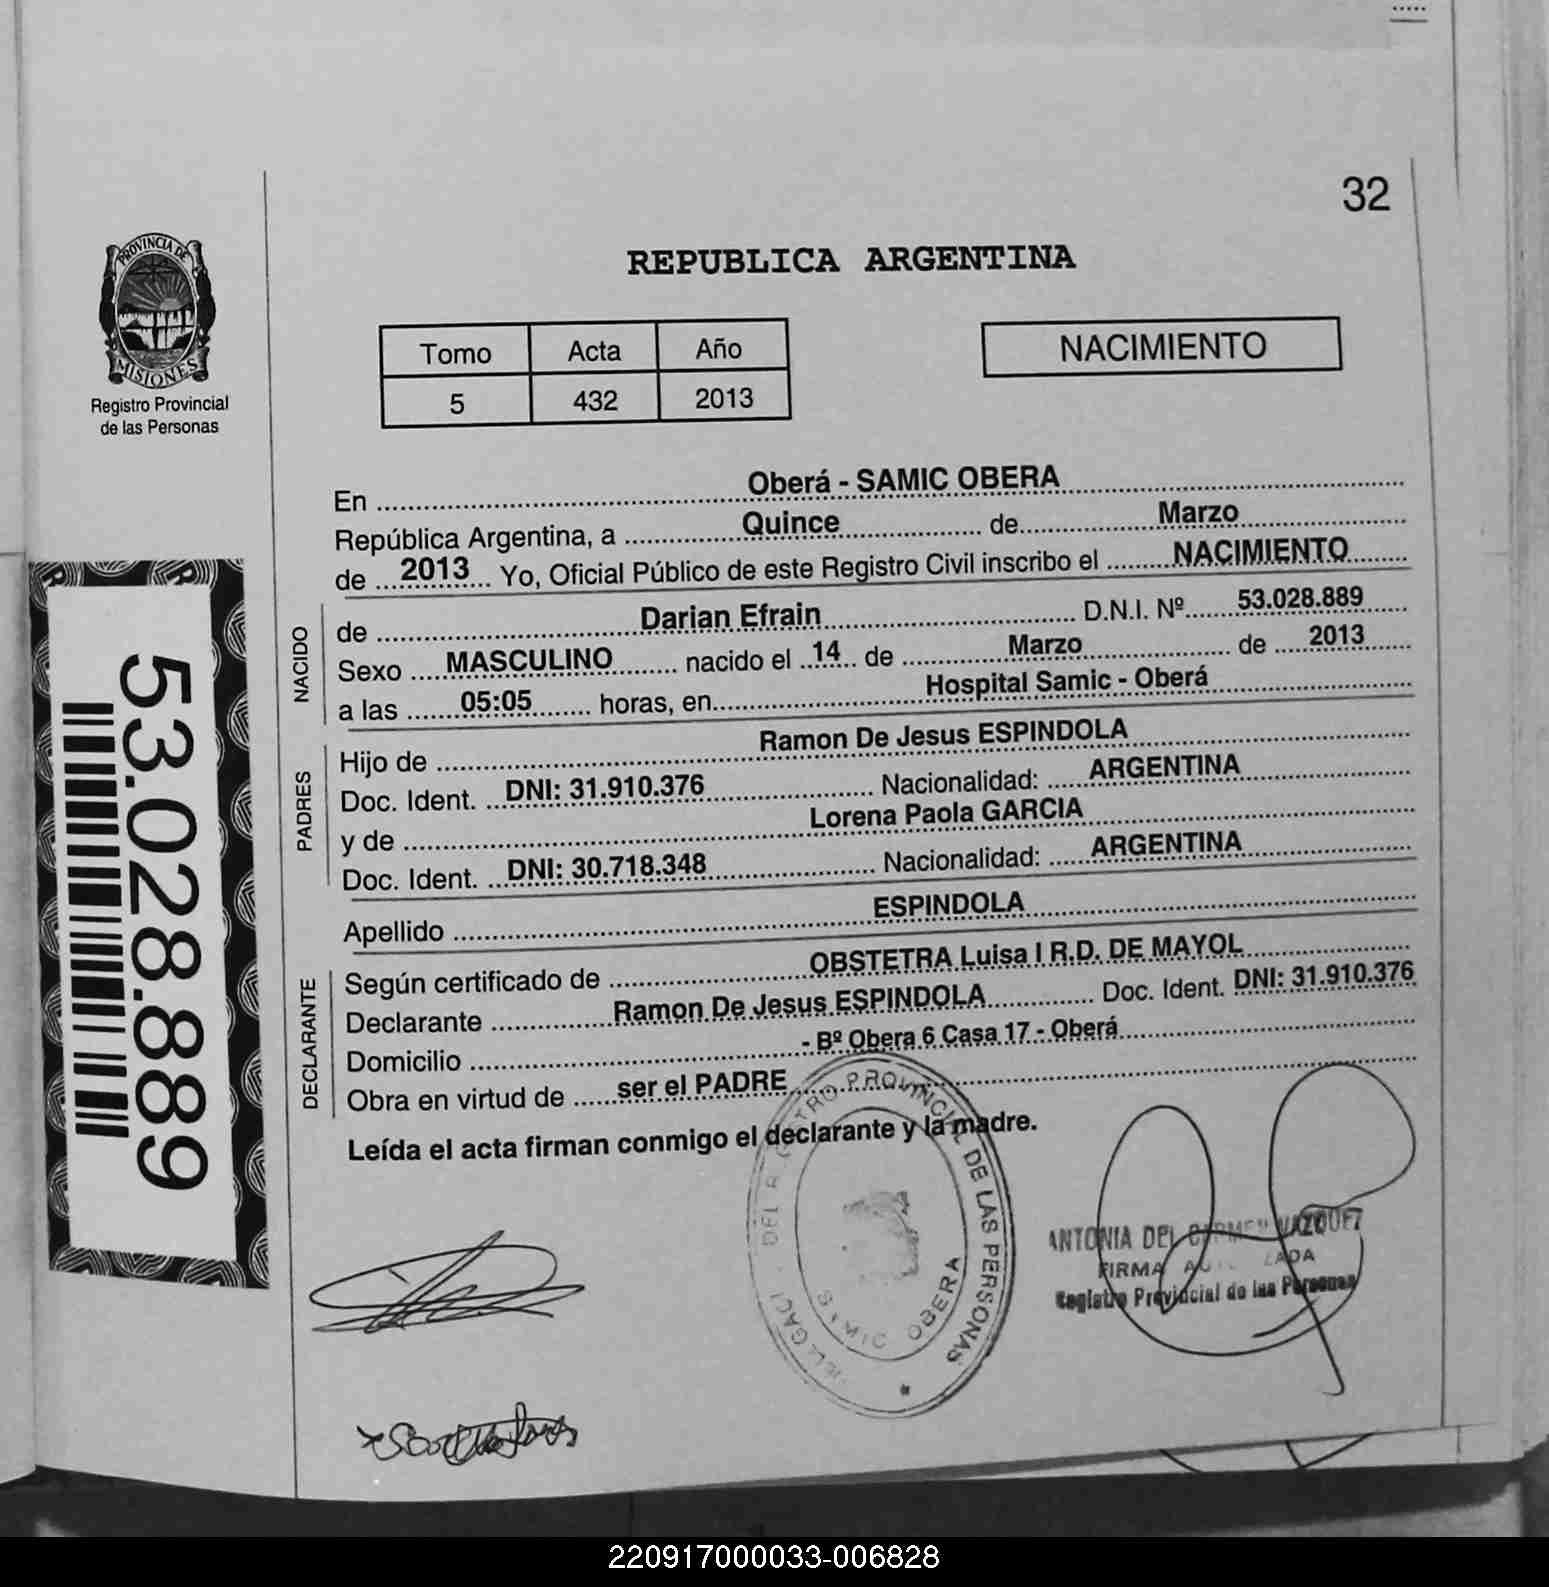 32
PROVINCIA DE
MISIONES
Registro Provincial
de las Personas
REPUBLICA ARGENTINA
Tomo Acta Año
5 432 2013
NACIMIENTO
En Oberá - SAMIC OBERA
República Argentina, a Quince de Marzo
de 2013 Yo, Oficial Público de este Registro Civil inscribo el NACIMIENTO
NACIDO
de Darian Efrain D.N.I. Nº 53.028.889
Sexo MASCULINO nacido el 14 de Marzo de 2013
a las 05:05 horas, en Hospital Samic - Oberá
PADRES
Hijo de Ramon De Jesus ESPINDOLA
Doc. Ident. DNI: 31.910.376 Nacionalidad: ARGENTINA
y de Lorena Paola GARCIA
Doc. Ident. DNI: 30.718.348 Nacionalidad: ARGENTINA
Apellido ESPINDOLA
DECLARANTE
Según certificado de OBSTETRA Luisa I R.D. DE MAYOL
Declarante Ramon De Jesus ESPINDOLA Doc. Ident. DNI: 31.910.376
Domicilio - Bº Obera 6 Casa 17 - Oberá
Obra en virtud de ser el PADRE
Leída el acta firman conmigo el declarante y la madre.
53.028.889
PROVINCIAL DE LAS PERSONAS
SAMIC OBERA
ANTONIA DEL CARMEN VAZQUEZ
FIRMA
Registro Provincial de las Personas
220917000033-006828